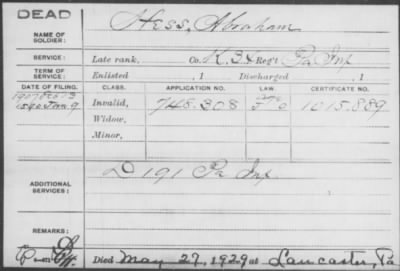 DEAD
NAME OF SOLDIER: Hess, Abraham
SERVICE: Late rank, Co. K. 34 Reg't Pa Inf
TERM OF SERVICE: Enlisted , 1 Discharged , 1
DATE OF FILING. CLASS. APPLICATION NO. LAW. CERTIFICATE NO.
1890 9 Invalid, 748.308 1015.889
Widow,
Minor,
ADDITIONAL SERVICES: D 191 Pa Inf
REMARKS:
Died May 27, 1929 at Lancaster, Pa